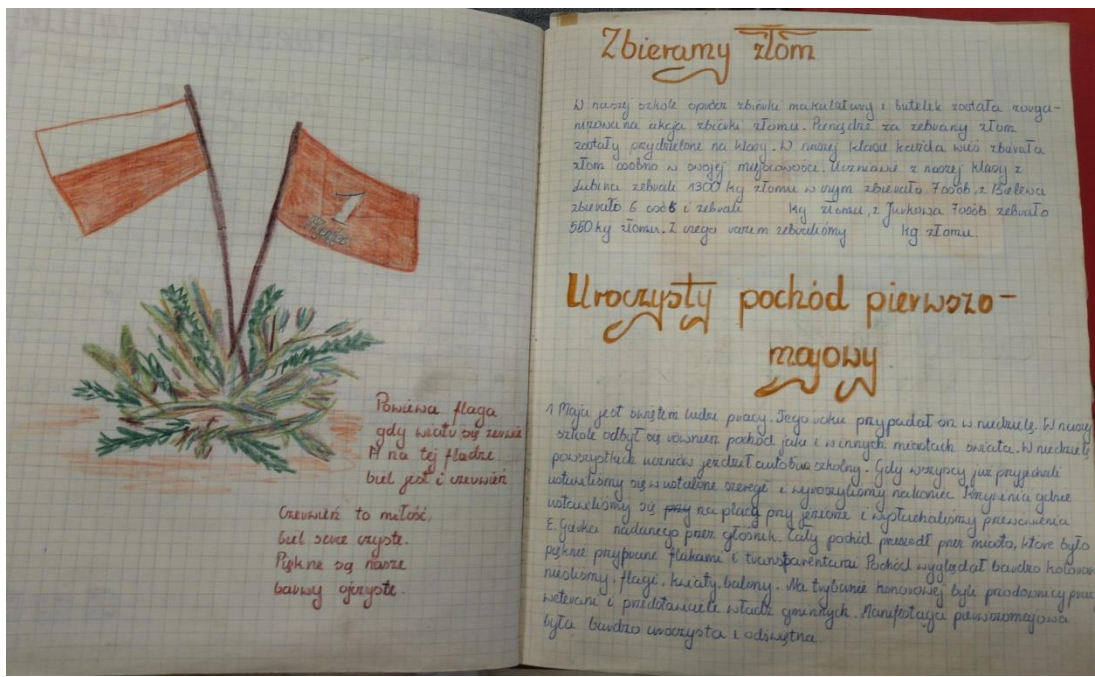 1
Maja
Powiewa flaga
gdy wiatr się zerwie
A na tej fladze
biel jest i czerwień
Czerwień to miłość,
biel serce czyste.
Piękne są nasze
barwy ojczyste.
Zbieramy złom
W naszej szkole oprócz zbiórki makulatury i butelek została zorga-
nizowana akcja zbiórki złomu. Pieniądze za zebrany złom
zostały przydzielone na klasy. W naszej klasie każda wieś zbierała
złom osobno w swojej miejscowości. Uczniowie z naszej klasy z
Lubina zebrali 1300 kg złomu w czym zbierało 7 osób, z Bielewa
zbierało 6 osób i zebrali kg złomu, z Jurkowa 7 osób zebrało
550 kg złomu. Z czego razem zebraliśmy kg złomu.
Uroczysty pochód pierwszo-
majowy
1 Maja jest świętem ludzi pracy. Tego roku przypadał on w niedzielę. W naszej
szkole odbył się również pochód jak i w innych miastach świata. W niedzielę
po wszystkich uczniów jeździł autobus szkolny. Gdy wszyscy już przyjechali
ustawiliśmy się w ustalone szeregi i wyruszyliśmy na koniec Krzywinia gdzie
ustawiliśmy się przy na placu przy jeziorze i wysłuchaliśmy przemówienia
E. Gierka nadanego przez głośnik. Cały pochód przeszedł przez miasto, które było
pięknie przybrane flakami i transparentami Pochód wyglądał bardzo kolorowo
nieśliśmy, flagi, kwiaty, balony. Na trybunie honorowej byli przodownicy pracy
weterani i przedstawiciele władz gminnych. Manifestacja pierwszomajowa
była bardzo uroczysta i odświętna.